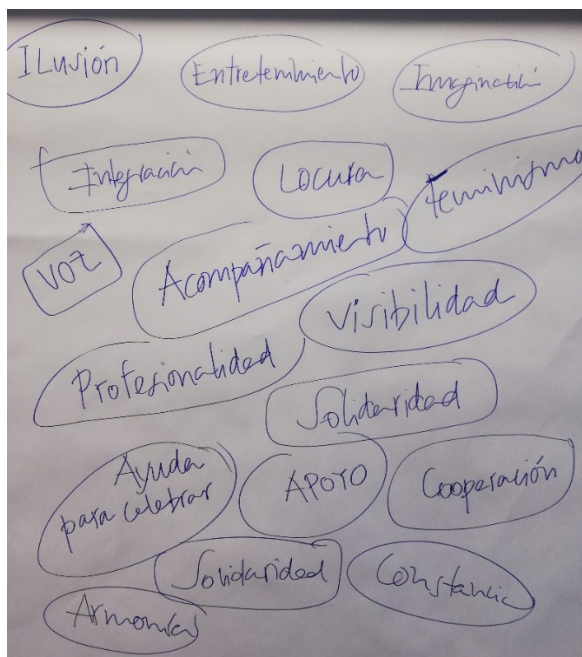 ILusión Entretenimiento Imaginación
Integración Locura feminismo
VOZ Acompañamiento
Visibilidad
Profesionalidad
Solidaridad
Ayuda
para celebrar APOYO Cooperación
Solidaridad Constancia
Armonías